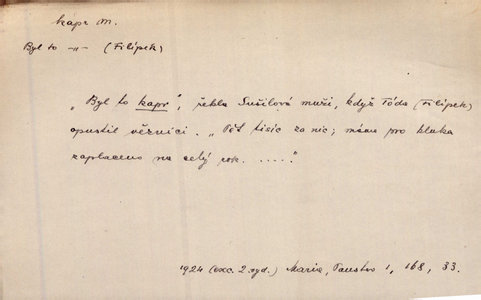 kapr m.
Byl to -"- (Filípek)
„Byl to kapr", řekla Sušilová muži, když Tóda (Filípek)
opustil věznici. „Pět tisíc za nic; máme pro kluka
zaplaceno na celý rok. ....."
1924 (exc. 2. vyd.) Maria, Panstvo 1, 168, 33.